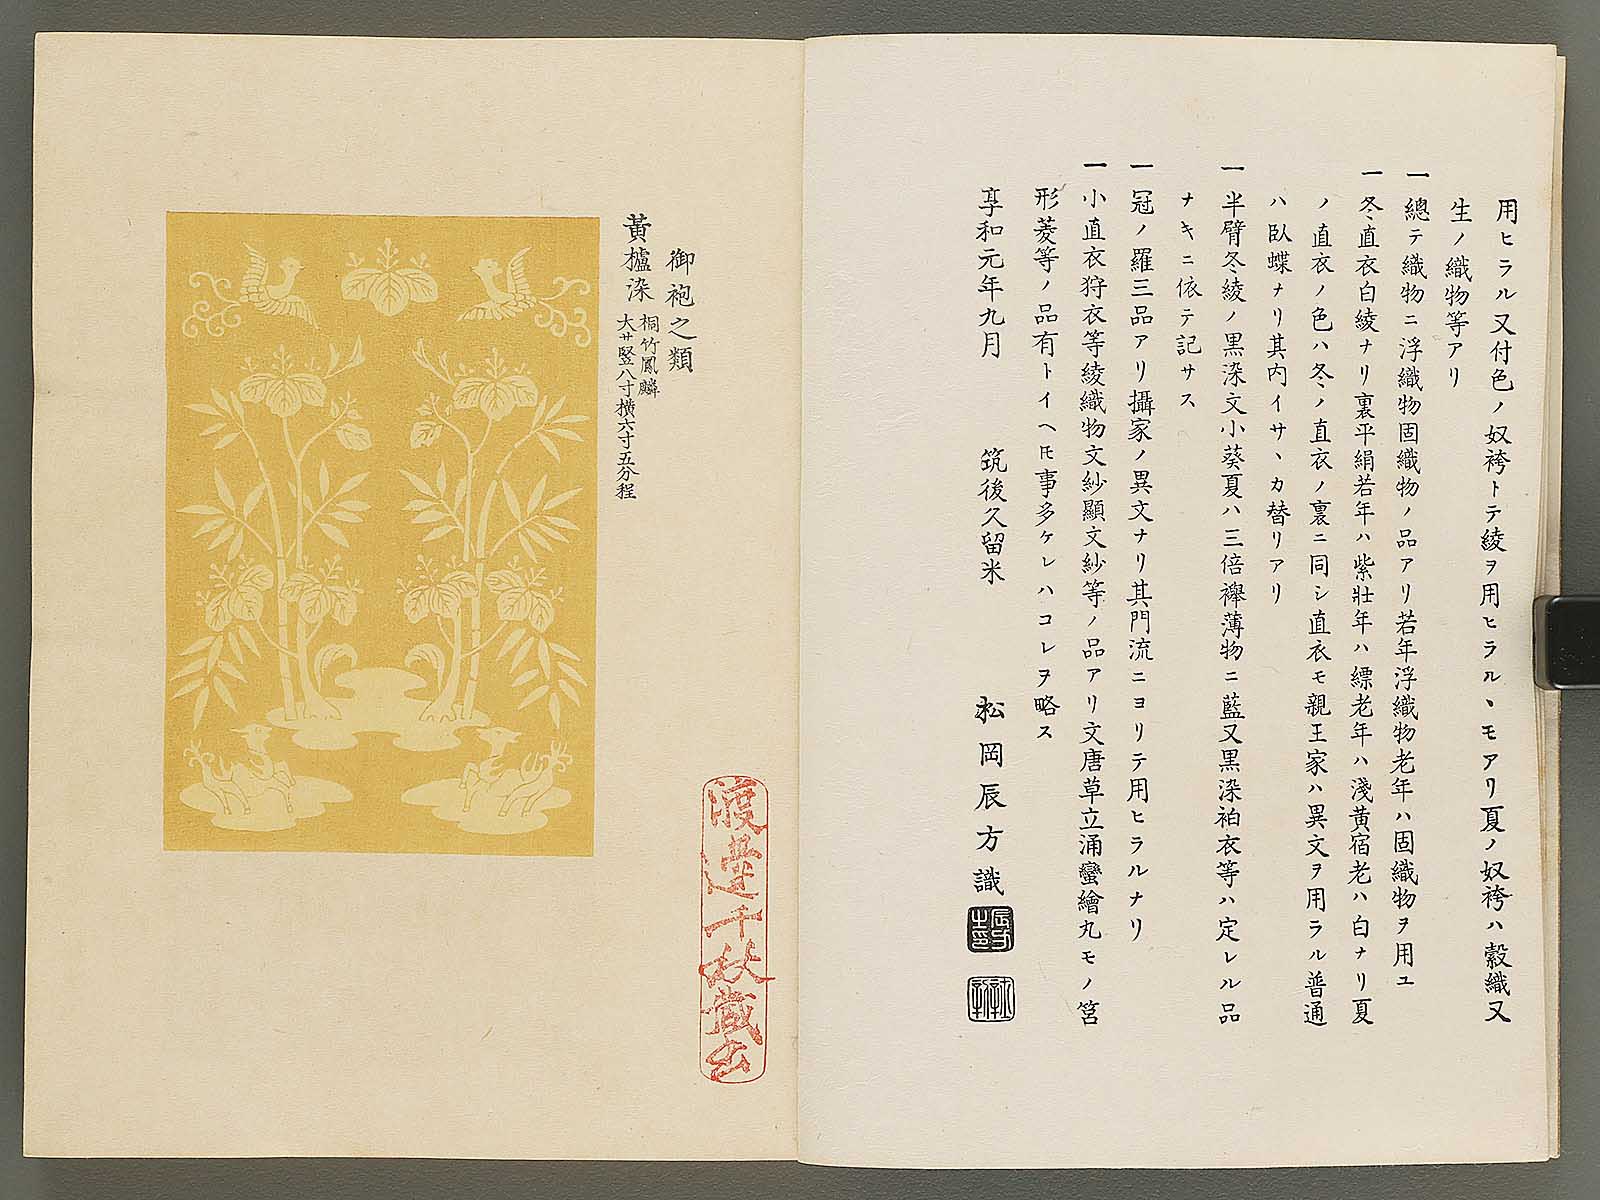 用ヒラル又付色ノ奴袴トテ綾ヲ用ヒラルヽモアリ夏ノ奴袴ハ縠織又
生ノ織物等アリ
一總テ織物ニ浮織物固織物ノ品アリ若年浮織物老年ハ固織物ヲ用ユ
一冬直衣白綾ナリ裏平絹若年ハ紫壯年ハ縹老年ハ淺黄宿老ハ白ナリ夏
ノ直衣ノ色ハ冬ノ直衣ノ裏ニ同シ直衣モ親王家ハ異文ヲ用ラル普通
ハ臥蝶ナリ其内イサヽカ替リアリ
一半臂冬綾ノ黒染文小葵夏ハ三倍襷薄物ニ藍又黒染袙衣等ハ定レル品
ナキニ依テ記サス
一冠ノ羅三品アリ攝家ノ異文ナリ其門流ニヨリテ用ヒラルナリ
一小直衣狩衣等綾織物文紗顯文紗等ノ品アリ文唐草立涌蠻繪丸モノ筥
形菱等ノ品有トイヘ𪜈事多ケレハコレヲ略ス
享和元年九月 筑後久留米 松岡辰方識
御袍之類
黃櫨染
桐竹鳳麟
大サ竪八寸横六寸五分程
渡邊千秋蔵書